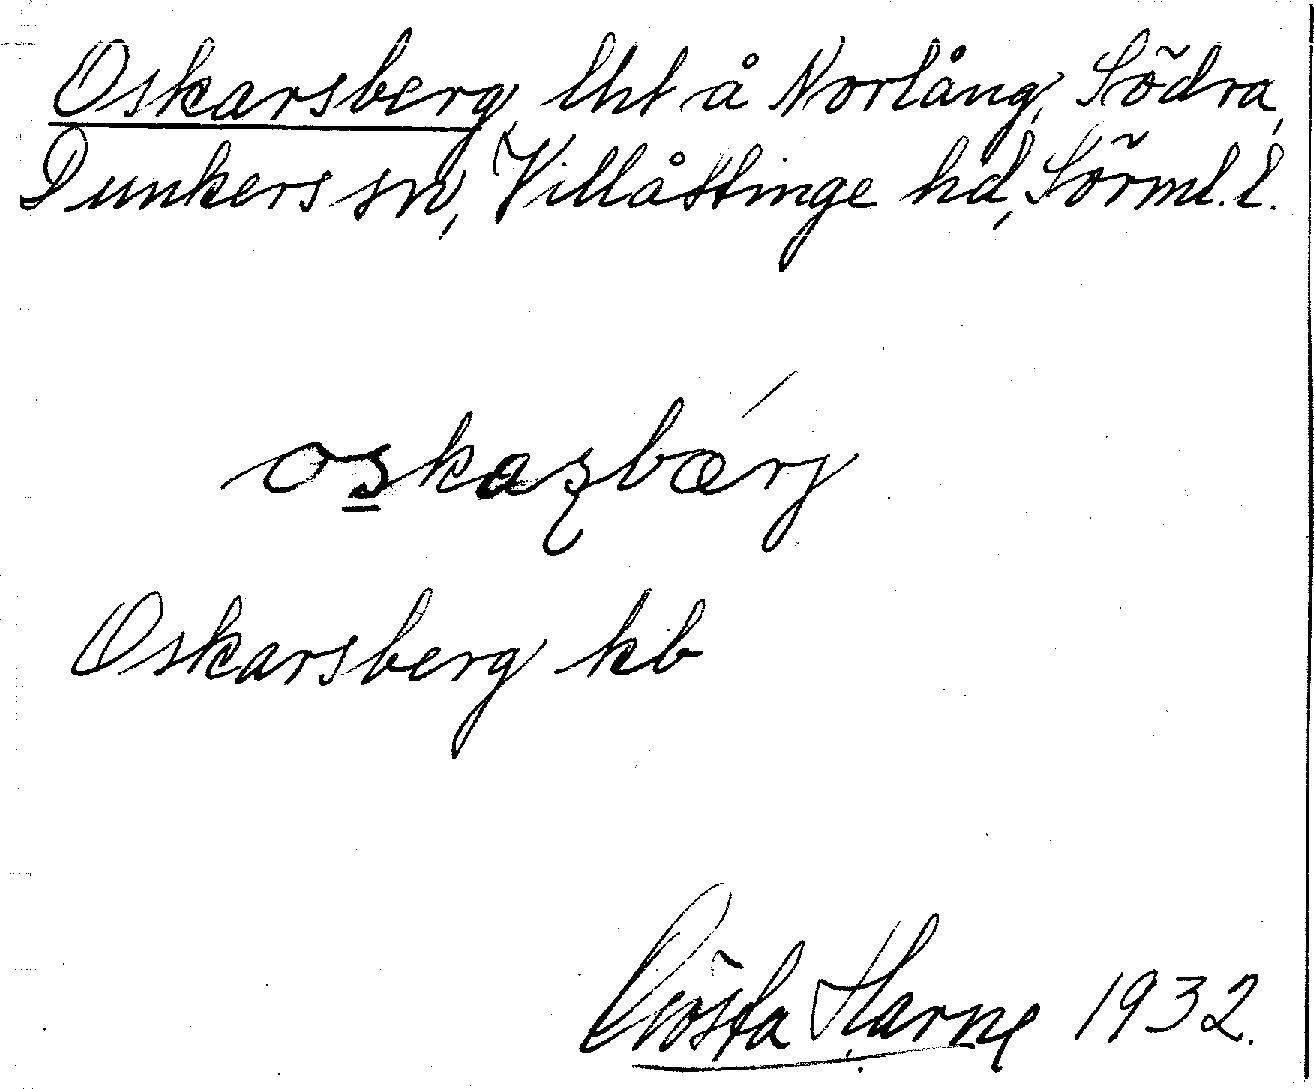 Oskarsberg, lht å Norlång, Södra,
Dunkers sn, Villåttinge hd, Sörml. l.
os̲kaʂbærj
Oskarsberg kb
Gösta Harne 1932.